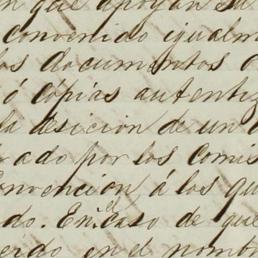 que apoyan su
convenido igualm
os documentos
ó copias autentiz
la desicion de un
ado por los Comis
onvencion á los qu
do. En el caso de que
en el nombr